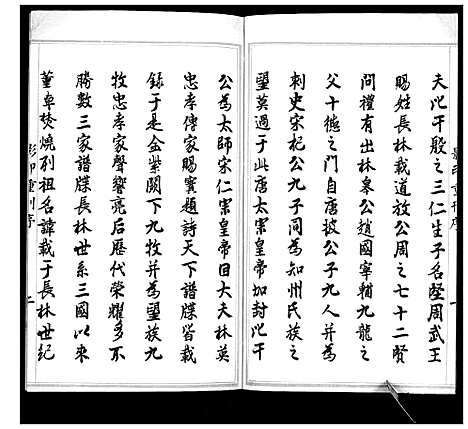 夫比干殷之三仁生子名堅周武王
賜姓長林載道放公周之七十二賢
問禮有出林皋公趙國宰輔九龍之
父十德之門自唐披公子九人并為
刺史宋杞公九子同為知州氏族之
望莫過于此唐太宗皇帝加封比干
公為太師宋仁宗皇帝曰大夫林英
忠孝傳家賜實題詩天下譜牒皆載
錄于是金紫闕下九牧并為望族九
牧忠孝家聲響亮后歷代榮耀多不
勝數三家譜牒長林世系三國以來
董卓焚燒列祖名諱載于長林世紀
影印重刊序
二